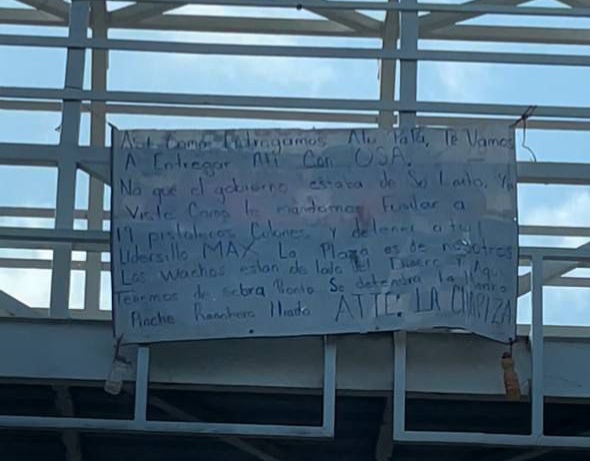 Asi Como Entregamos A tu PaPá, Te Vamos
A Entregar A ti Con USA.
No que el gobierno estaba de Su Lado, Ya
Viste Como le mandamos Fusilar a
19 pistoleros Culones y detener a tu
Lidersillo MAX La Plaza es de nosotros
Los Wachos estan de lado del Dinero Y Aqui
Tenemos de sobra Ponto Se detendra La
Pinche Ranchero ATTE: LA CHAPIZA